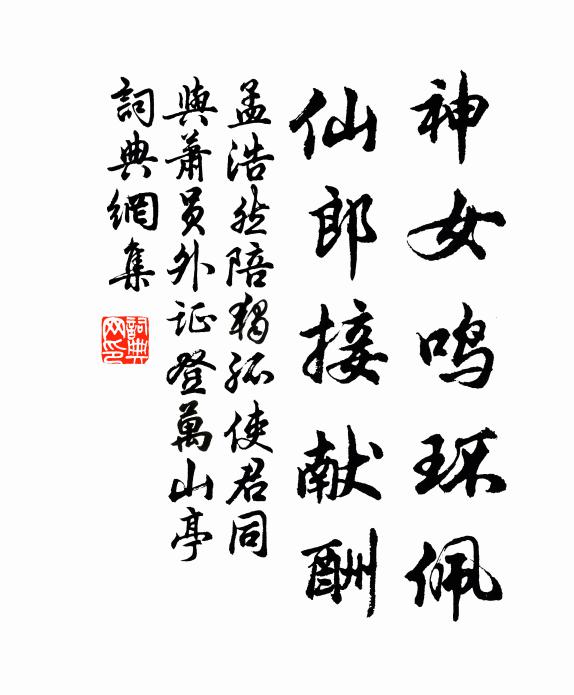 神女鸣环佩
仙郎接献酬
孟浩然陪獨孤使君同
與蕭員外证登萬山亭
詞典網集
詞典
网印